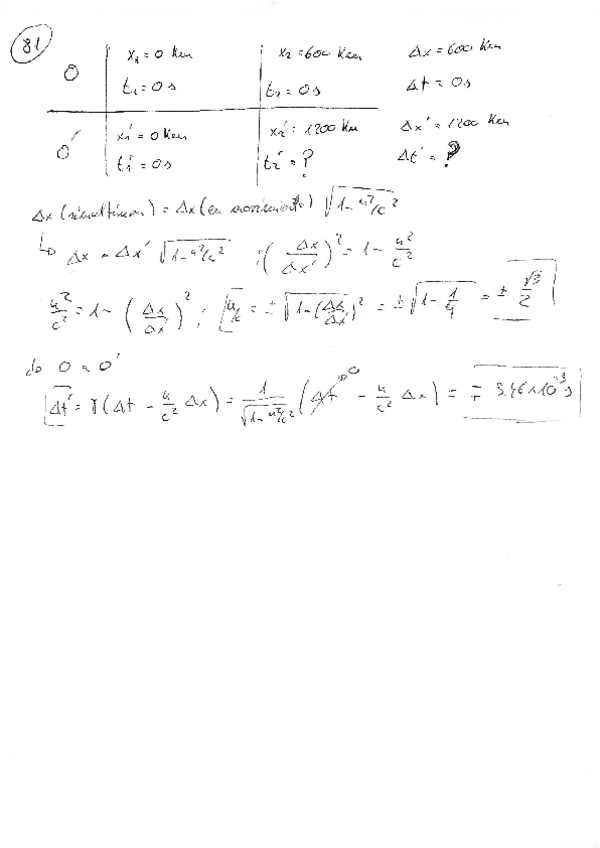 81
O x₁ = 0 Km x₂ = 600 Km Δx = 600 Km
t₁ = 0 s t₂ = 0 s Δt = 0 s
O' x₁' = 0 Km x₂' = 1200 Km Δx' = 1200 Km
t₁' = 0 s t₂' = ? Δt' = ?
Δx (simultáneon) = Δx (en movimiento) √(1-u²/c²)
↳ Δx = Δx' √(1-u²/c²) ; (Δx/Δx')² = 1 - u²/c²
u²/c² = 1 - (Δx/Δx')² ; u/c = ± √(1-(Δx/Δx')²) = ± √(1 - 1/4) = ± √3/2
de O a O'
Δt' = γ(Δt - u/c² Δx) = 1/√(1-u²/c²) (Δt→0 - u/c² Δx) = ∓ 3.46×10⁻³ s